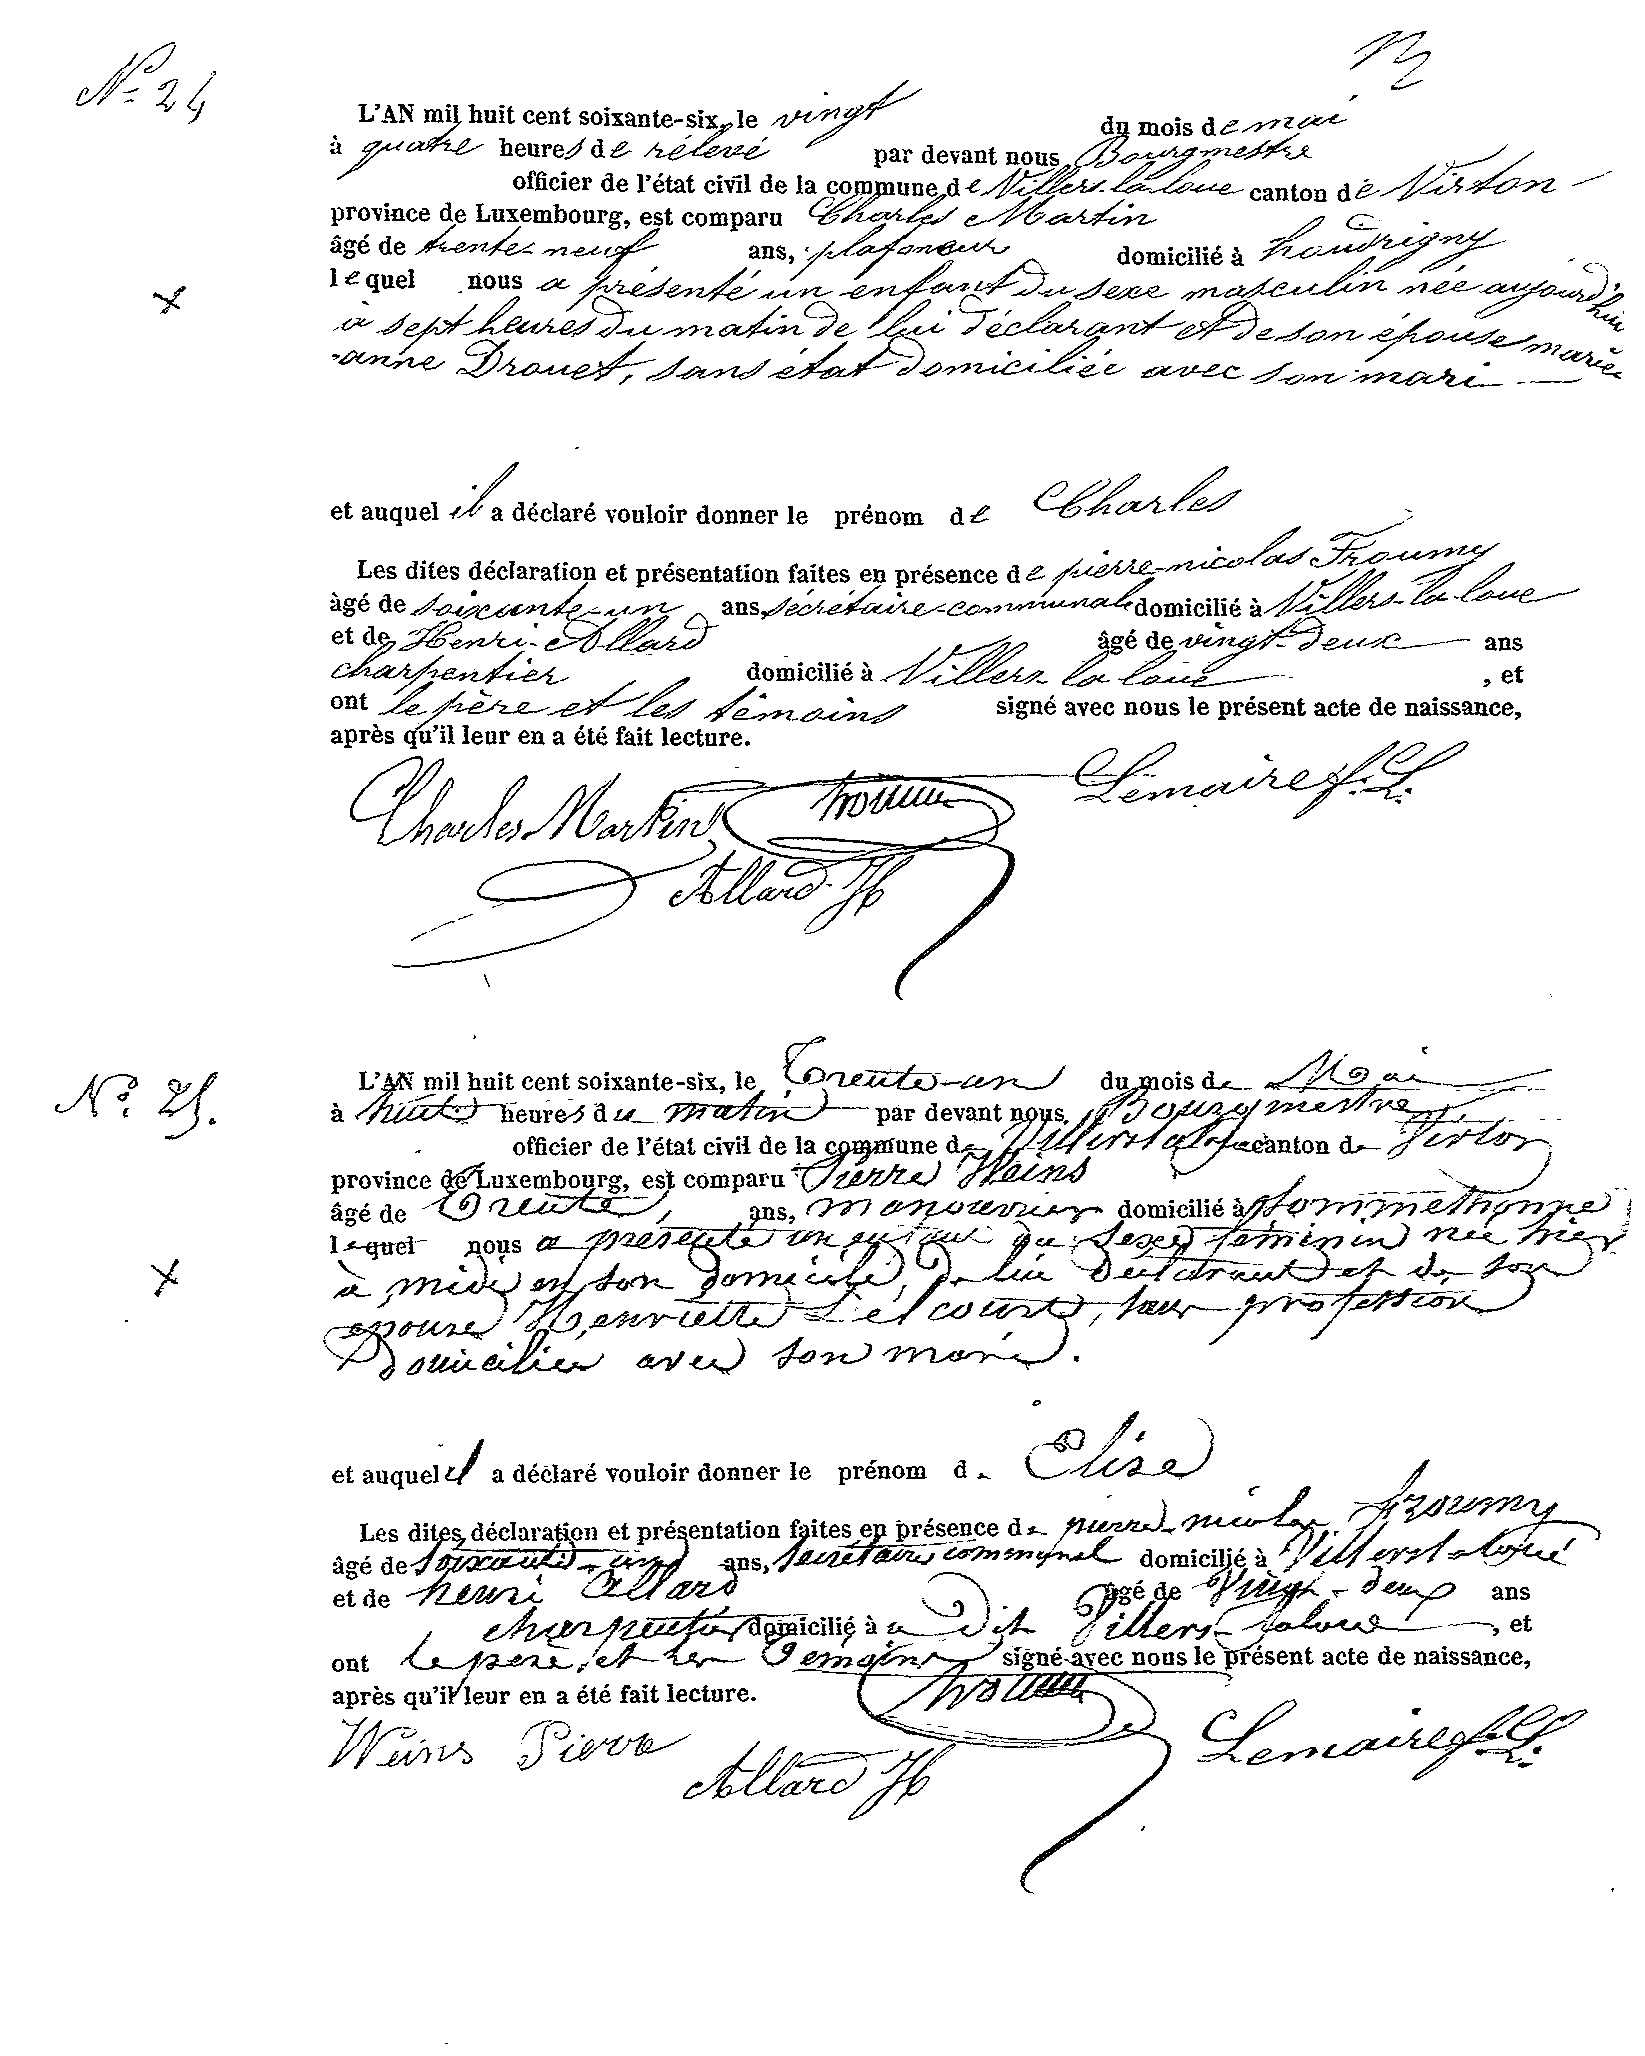 13
N° 24
L'AN mil huit cent soixante-six, le vingt du mois de mai
à quatre heures de rélevé par devant nous Bourgmestre
officier de l'état civil de la commune de Villers-la-loue canton de Virton
province de Luxembourg, est comparu Charles Martin
âgé de trente-neuf ans, plafoneur domicilié à houdrigny
lequel nous a présenté un enfant du sexe masculin née aujourd'hui
à sept heures du matin de lui déclarant et de son épouse marie
-anne Drouet, sans état domiciliée avec son mari
et auquel il a déclaré vouloir donner le prénom de Charles
Les dites déclaration et présentation faites en présence de pierre-nicolas Froumy
âgé de soixante-un ans, sécrétaire-communal domicilié à Villers-la-loue
et de Henri Allard âgé de vingt-deux ans
charpentier domicilié à Villers-la loue , et
ont le père et les témoins signé avec nous le présent acte de naissance,
après qu'il leur en a été fait lecture.
Charles Martin Lemaire f. L.
Allard H
N° 25.
L'AN mil huit cent soixante-six, le Trente-un du mois de Mai
à huit heures du matin par devant nous Bourgmestre
officier de l'état civil de la commune de Villerslaloue canton de Virton
province de Luxembourg, est comparu Pierre Weins
âgé de Trente, ans, manouvrier domicilié à Sommethonne
lequel nous a présenté un enfant du sexe féminin née hier
à midi en son domicile, de lui déclarant et de son
épouse Henriette Lelcourt, sans profession
domiciliée avec son mari.
et auquel il a déclaré vouloir donner le prénom de Elise
Les dites déclaration et présentation faites en présence de pierre-nicolas froumy
âgé de soixante-un ans, secrétaire communal domicilié à Villerslaloue
et de henri Allard âgé de Vingt-deux ans
charpentier domicilié à a Dit Villers-laloue , et
ont le père, et les Témoins signé avec nous le présent acte de naissance,
après qu'il leur en a été fait lecture.
Weins Pierre Lemaire f. L.
Allard H